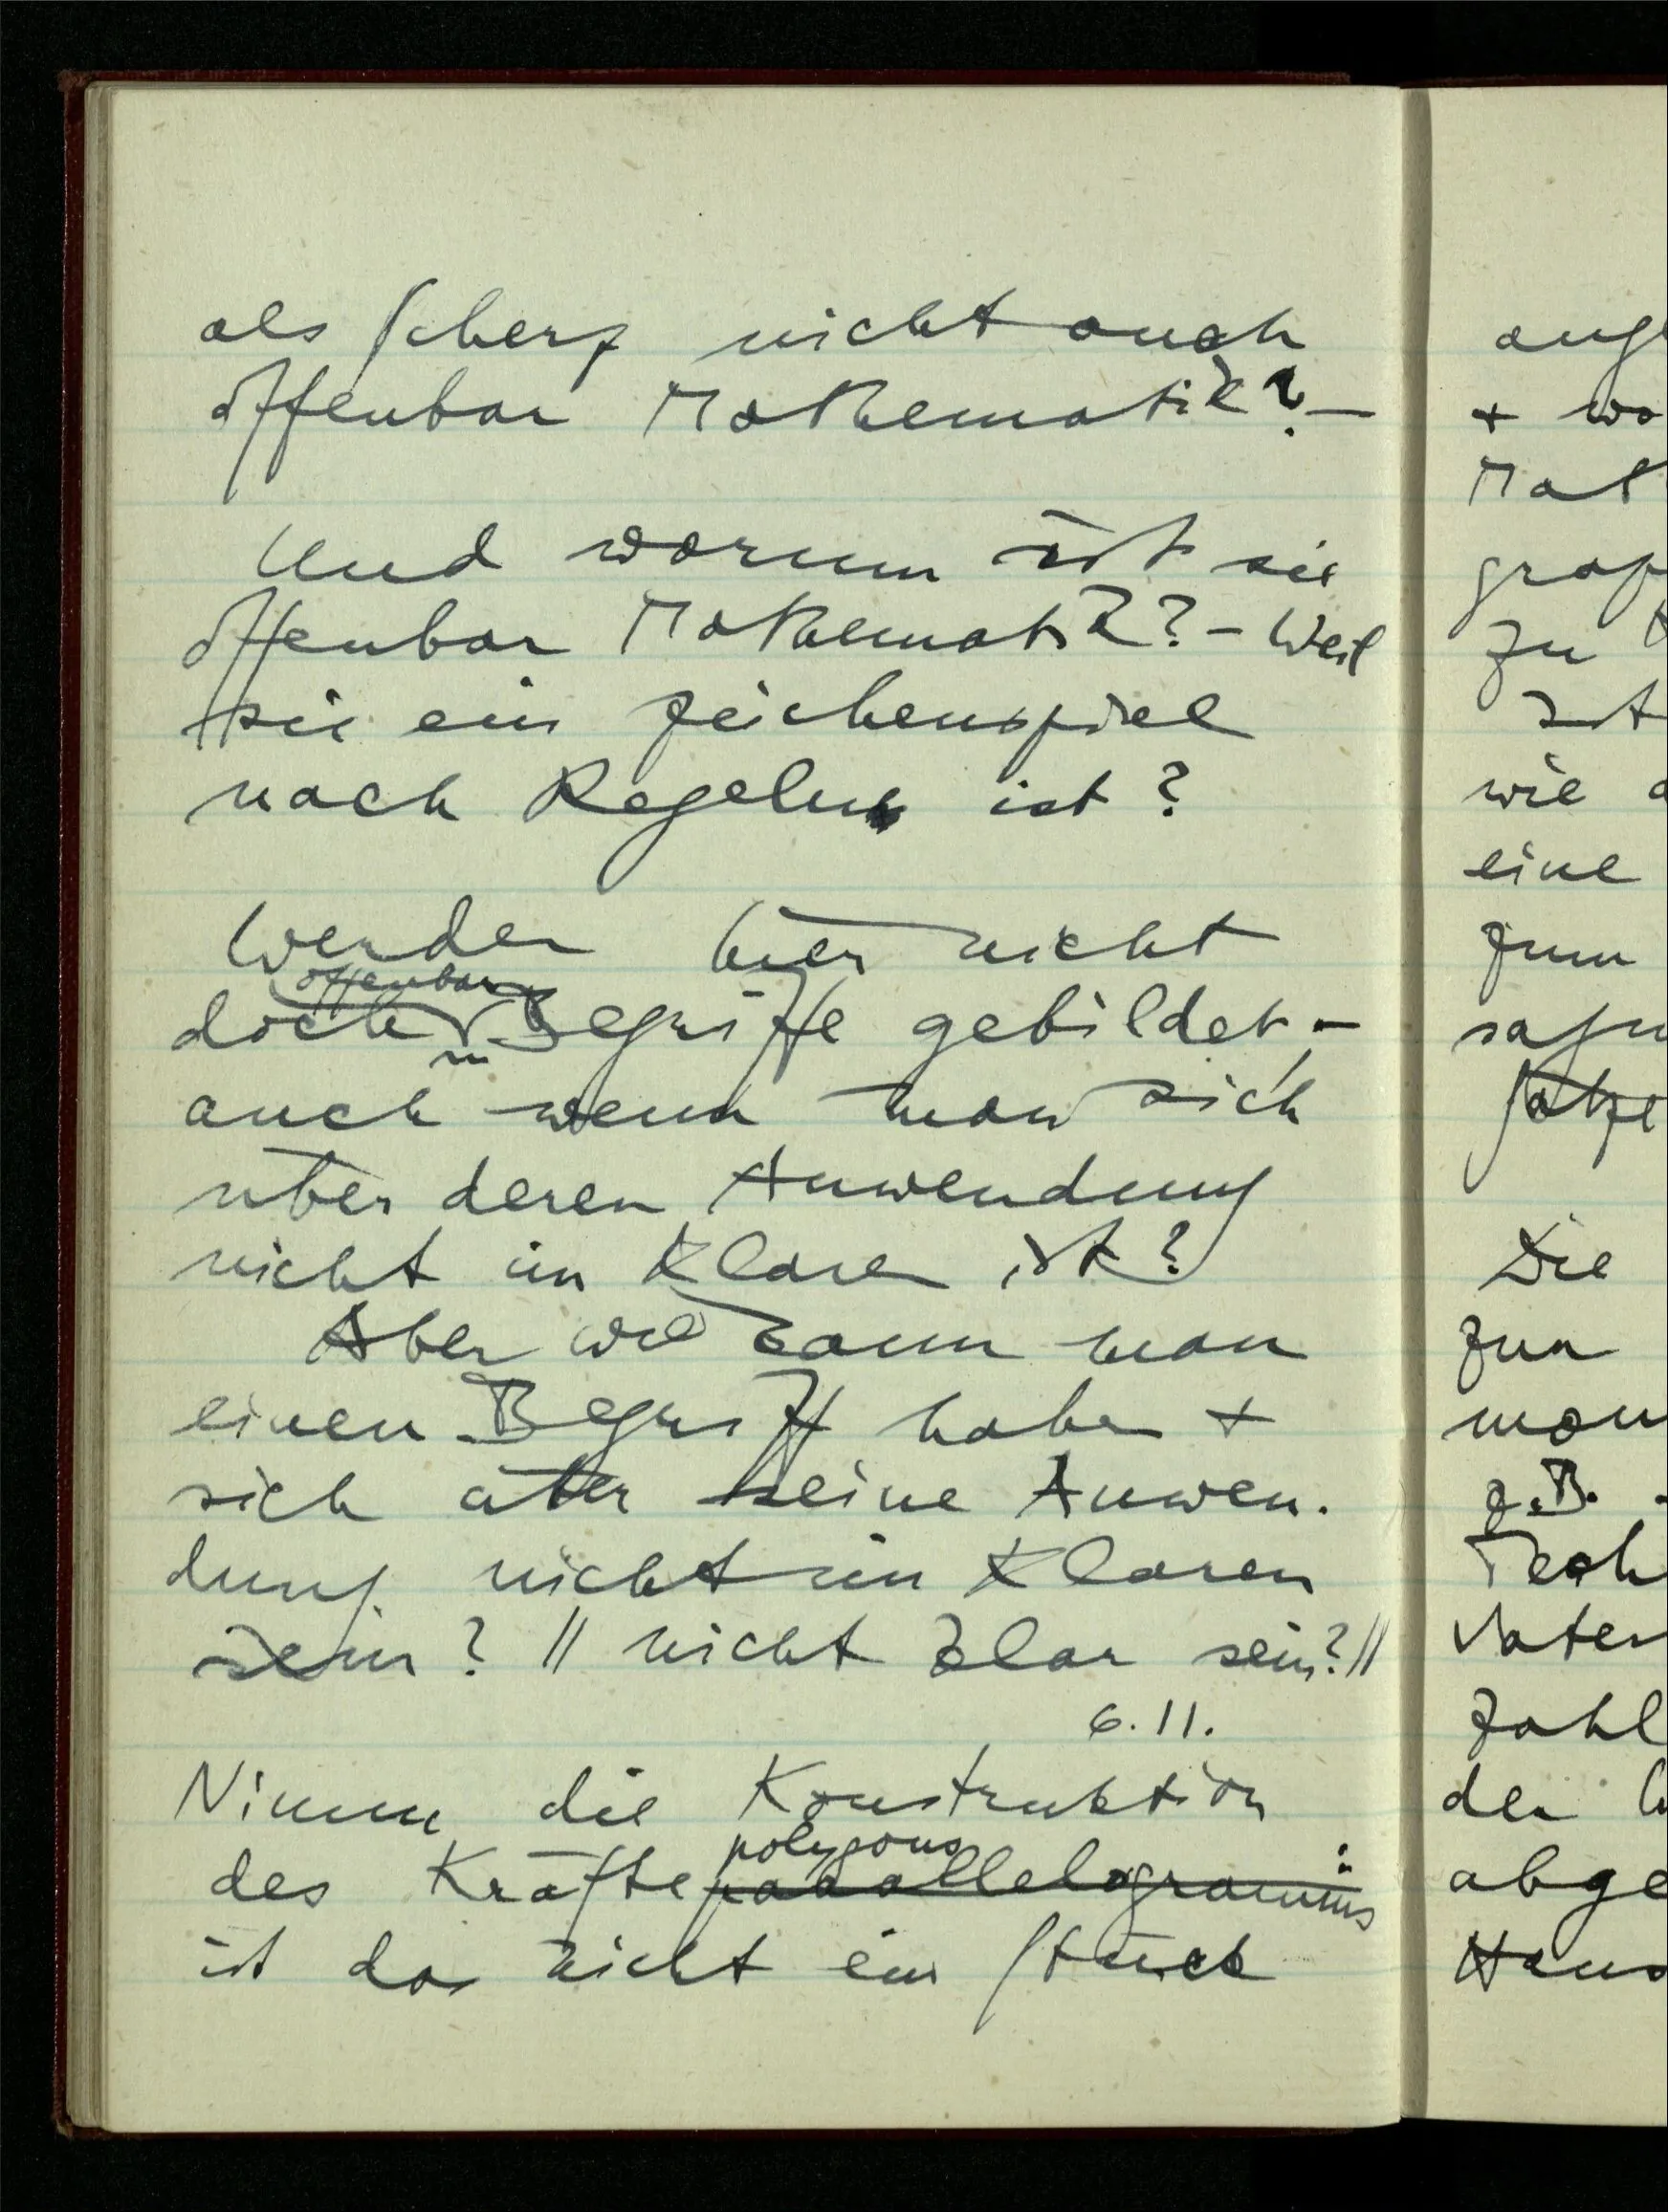 als Scherz nicht auch
offenbar Mathematik? –
Und warum ist sie
offenbar Mathematik? – Weil
sie ein Zeichenspiel
nach Regeln ist?
Werden hier nicht
offenbar
doch Begriffe gebildet –
auch wenn man sich
über deren Anwendung
nicht im Klaren ist?
Aber wie kann man
einen Begriff haben +
sich über seine Anwen-
dung nicht im Klaren
sein? // nicht klar sein? //
6.11.
Nimm die Konstruktion
polygons
des Kräfteparallelogramms:
ist das nicht ein Stück
+ wo
zu
Ist
wie
eine
zum
Die
zur
man
z.B.
der